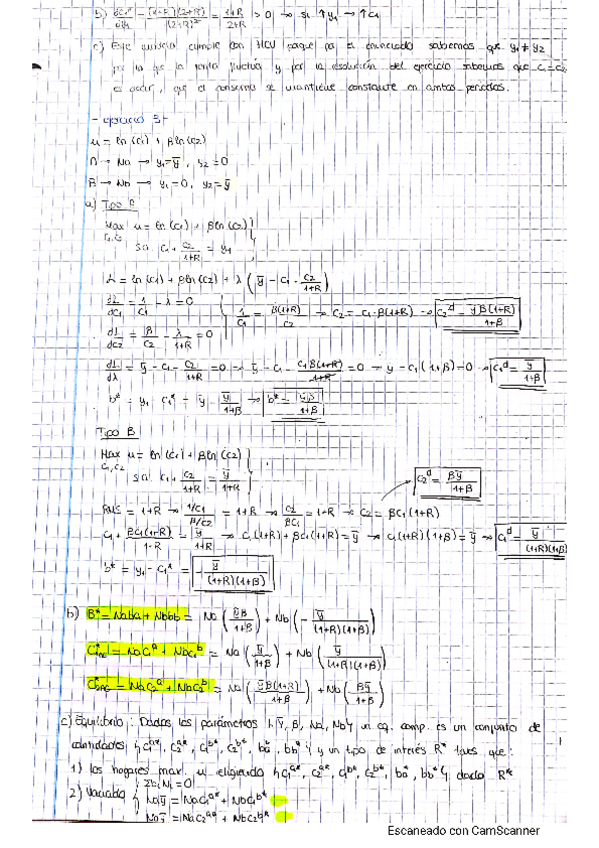 b) dc1*/dy1 = (1+R)(2+R)/(2+R)² = 1+R/2+R > 0 → si ↑y1 → ↑c1
c) Este quinielo cumple con HCV porque por el enunciado sabemos que y1 ≠ y2
por lo que la renta fluctúa y por la resolución del ejercicio sabemos que c1 = c2
es decir, que el consumo se mantiene constante en ambos periodos.
- ejercicio 5 -
u = ln(c1) + βln(c2)
A → Na → y1 = ȳ, y2 = 0
B → Nb → y1 = 0, y2 = ȳ
a) Tipo A
Max u = ln(c1) + βln(c2)
c1, c2
s.a. c1 + c2/1+R = y1
L = ln(c1) + βln(c2) + λ(ȳ - c1 - c2/1+R)
dL/dc1 = 1/c1 - λ = 0
1/c1 = β(1+R)/c2 → c2 = c1·β(1+R) → c2^a = ȳβ(1+R)/1+β
dL/dc2 = β/c2 - λ/1+R = 0
dL/dλ = ȳ - c1 - c2/1+R = 0 → ȳ - c1 - c1β(1+R)/1+R = 0 → y - c1(1+β) = 0 → c1^a = ȳ/1+β
b* = y1 - c1* = ȳ - ȳ/1+β → b* = ȳβ/1+β
Tipo B
Max u = ln(c1) + βln(c2)
c1, c2
s.a. c1 + c2/1+R = ȳ/1+R
c2^d = βȳ/1+β
RMS = 1+R → 1/c1/β/c2 = 1+R → c2/βc1 = 1+R → c2 = βc1(1+R)
c1 + βc1(1+R)/1+R = ȳ/1+R → c1(1+R) + βc1(1+R) = ȳ → c1(1+R)(1+β) = ȳ → c1^d = ȳ/(1+R)(1+β)
b* = y1 - c1* = - ȳ/(1+R)(1+β)
b) B* = Naba + Nbbb = Na(ȳβ/1+β) + Nb(- ȳ/(1+R)(1+β))
= NaC1^a + NbC1^b = Na(ȳ/1+β) + Nb(ȳ/(1+R)(1+β))
= NaC2^a + NbC2^b = Na(ȳβ(1+R)/1+β) + Nb(βȳ/1+β)
c) Equilibrio: Dados los parámetros {ȳ, β, Na, Nb} un eq. comp. es un conjunto de
cantidades {c1^a*, c2^a*, c1^b*, c2^b*, ba*, bb*} y un tipo de interés R* tales que:
1) los hogares max. u eligiendo {c1^a*, c2^a*, c1^b*, c2^b*, ba*, bb*}, dado R*
2) Vaciado { Σbi Ni = 0
Naȳ = NaC1^a* + NbC1^b*
Nbȳ = NaC2^a* + NbC2^b*
Escaneado con CamScanner